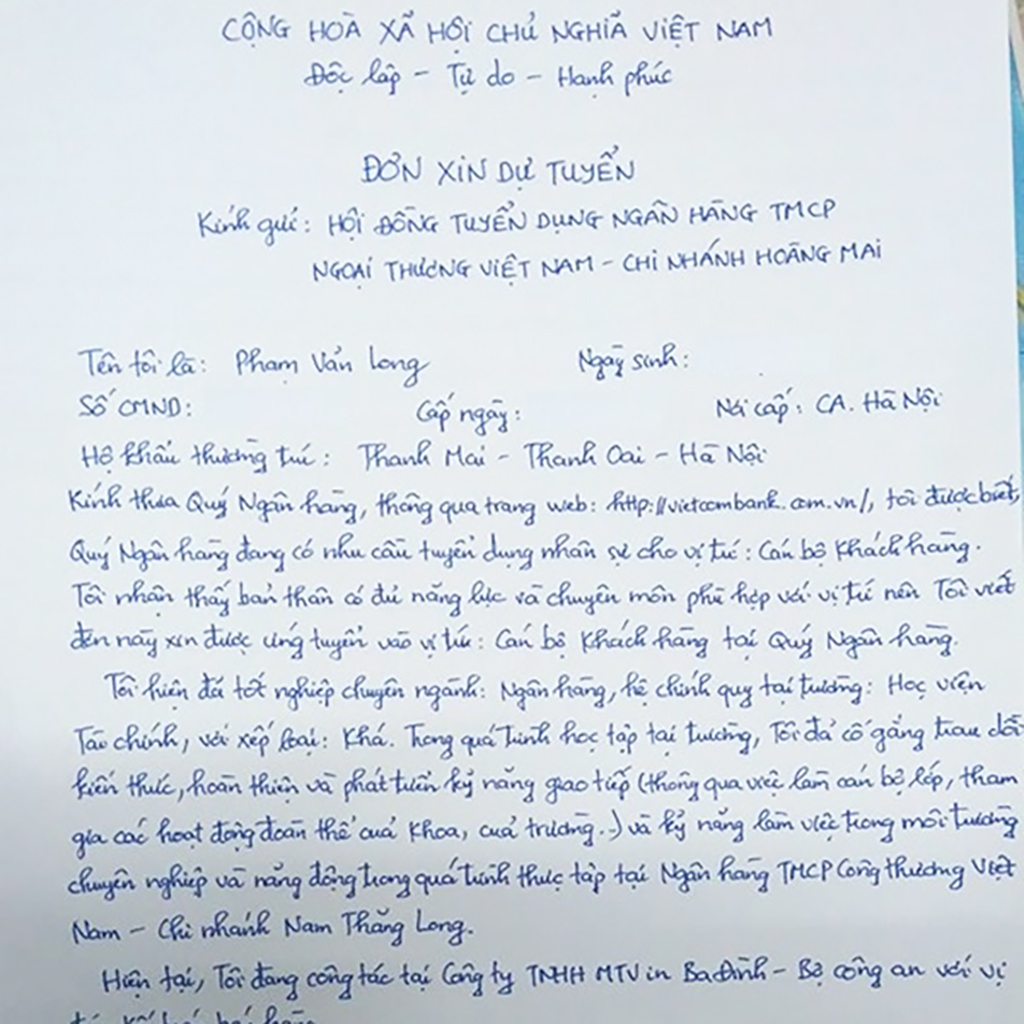 CỘNG HOÀ XÃ HỘI CHỦ NGHĨA VIỆT NAM
Độc lập - Tự do - Hạnh phúc
ĐƠN XIN DỰ TUYỂN
Kính gửi: HỘI ĐỒNG TUYỂN DỤNG NGÂN HÀNG TMCP
NGOẠI THƯƠNG VIỆT NAM - CHI NHÁNH HOÀNG MAI
Tên tôi là: Phạm Văn Long Ngày sinh:
Số CMND: Cấp ngày: Nơi cấp: CA. Hà Nội
Hộ khẩu thường trú: Thanh Mai - Thanh Oai - Hà Nội
Kính thưa Quý Ngân hàng, thông qua trang web: http://vietcombank.com.vn/, tôi được biết,
Quý Ngân hàng đang có nhu cầu tuyển dụng nhân sự cho vị trí: Cán bộ Khách hàng.
Tôi nhận thấy bản thân có đủ năng lực và chuyên môn phù hợp với vị trí nên Tôi viết
đơn này xin được ứng tuyển vào vị trí: Cán bộ Khách hàng tại Quý Ngân hàng.
Tôi hiện đã tốt nghiệp chuyên ngành: Ngân hàng, hệ chính quy tại trường: Học viện
Tài chính, với xếp loại: Khá. Trong quá trình học tập tại trường, Tôi đã cố gắng trau dồi
kiến thức, hoàn thiện và phát triển kỹ năng giao tiếp (thông qua việc làm cán bộ lớp, tham
gia các hoạt động đoàn thể của Khoa, của trường..) và kỹ năng làm việc trong môi trường
chuyên nghiệp và năng động trong quá trình thực tập tại Ngân hàng TMCP Công thương Việt
Nam - Chi nhánh Nam Thăng Long.
Hiện tại, Tôi đang công tác tại Công ty TNHH MTV in Ba Đình - Bộ công an với vị